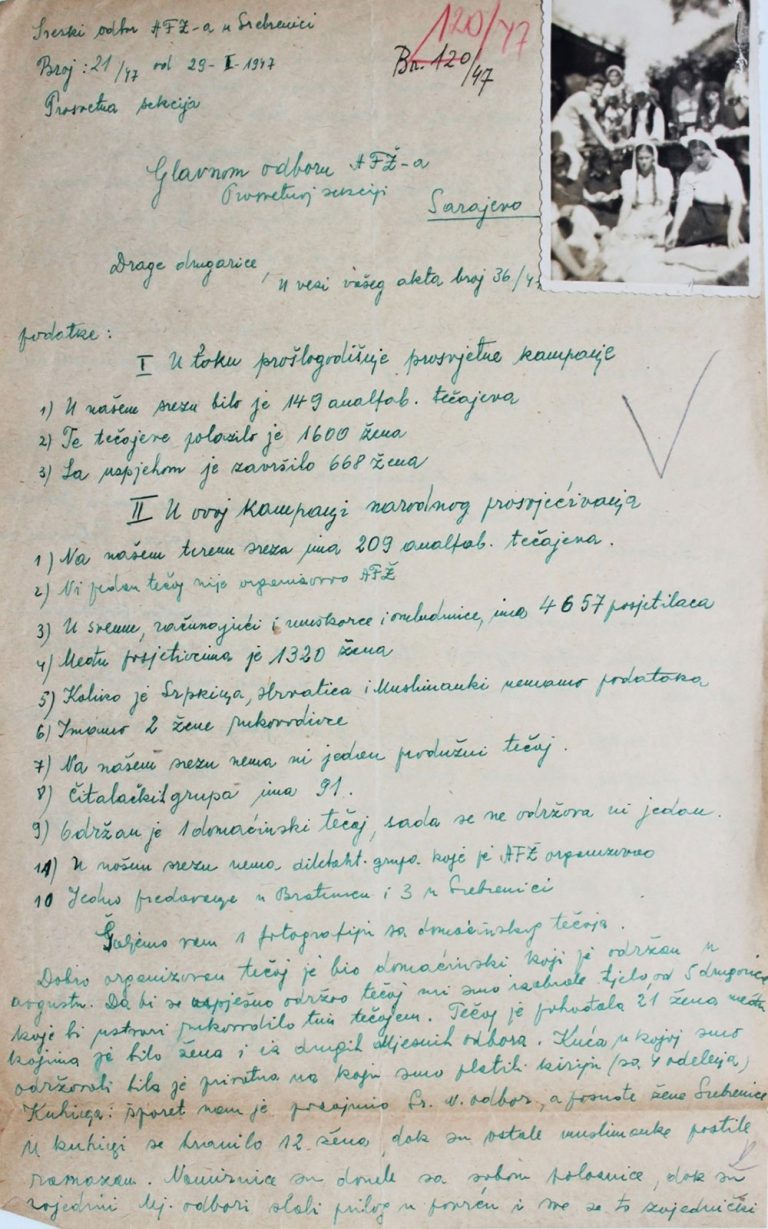 Sreski odbor AFŽ-a u Srebrenici
Broj: 21/47 od 29-I-1947
Prosvetna sekcija
120/47
Br. 120/47
Glavnom odboru AFŽ-a
Prosvetnoj sekciji
Sarajevo
Drage drugarice,
U vezi vašeg akta broj 36/47
podatke:
I U toku prošlogodišnje prosvjetne kampanje
1) U našem srezu bilo je 149 analfab. tečajeva
2) Te tečajeve polazilo je 1600 žena
3) Sa uspjehom je završilo 668 žena
II U ovoj kampanji narodnog prosvjećivanja
1) Na našem terenu sreza ima 209 analfab. tečajeva.
2) Ni jedan tečaj nije organizovao AFŽ
3) U svemu, računajući i muškarce i omladince, ima 4657 posjetilaca
4) Među posjetiocima je 1320 žena
5) Koliko je Srpkinja, Hrvatica i Muslimanki nemamo podataka
6) Imamo 2 žene rukovodioce
7) Na našem srezu nema ni jedan produžni tečaj.
8) Čitalačkih grupa ima 91.
9) Održan je 1 domaćinski tečaj, sada se ne održava ni jedan.
11) U našem srezu nema diletant. grupa koje je AFŽ organizovao
10 Jedno predavanje u Bratuncu i 3 u Srebrenici
Šaljemo vam 1 fotografiju sa domaćinskog tečaja.
Dobro organizovan tečaj je bio domaćinski koji je održan u
avgustu. Da bi se uspješno održao tečaj mi smo izabrale tjelo, od 5 drugarica
koje bi ustvari rukovodilo tim tečajem. Tečaj je pohađala 21 žena među
kojima je bilo žena i iz drugih Mjesnih odbora. Kuća u kojoj smo
održavali bila je privatna na koju smo platili kiriju (sa 4 odelenja)
Kuhinja: šporet nam je pozajmio Sr. N. odbor, a posuđe žene Srebrenice
U kuhinji se hranilo 12 žena, dok su ostale muslimanke postile
ramazan. Namirnice su donele sa sobom polaznice, dok su
pojedini Mj. odbori slali prilog u povrću i sve se to zajednički